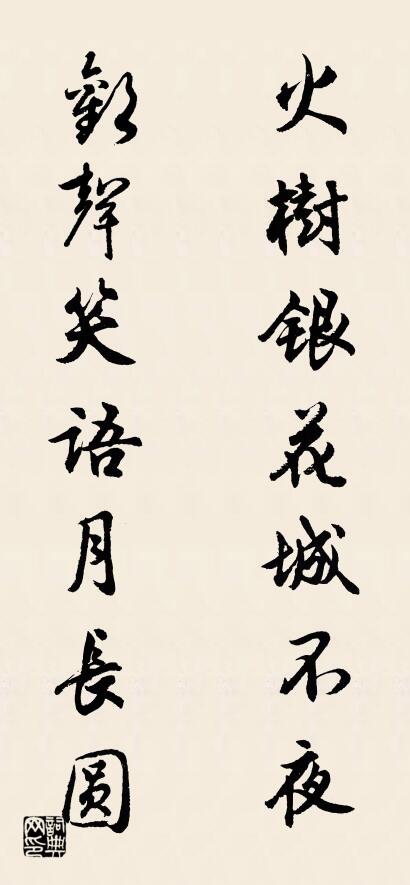 火樹銀花城不夜
歡聲笑語月長圓
詞典网印